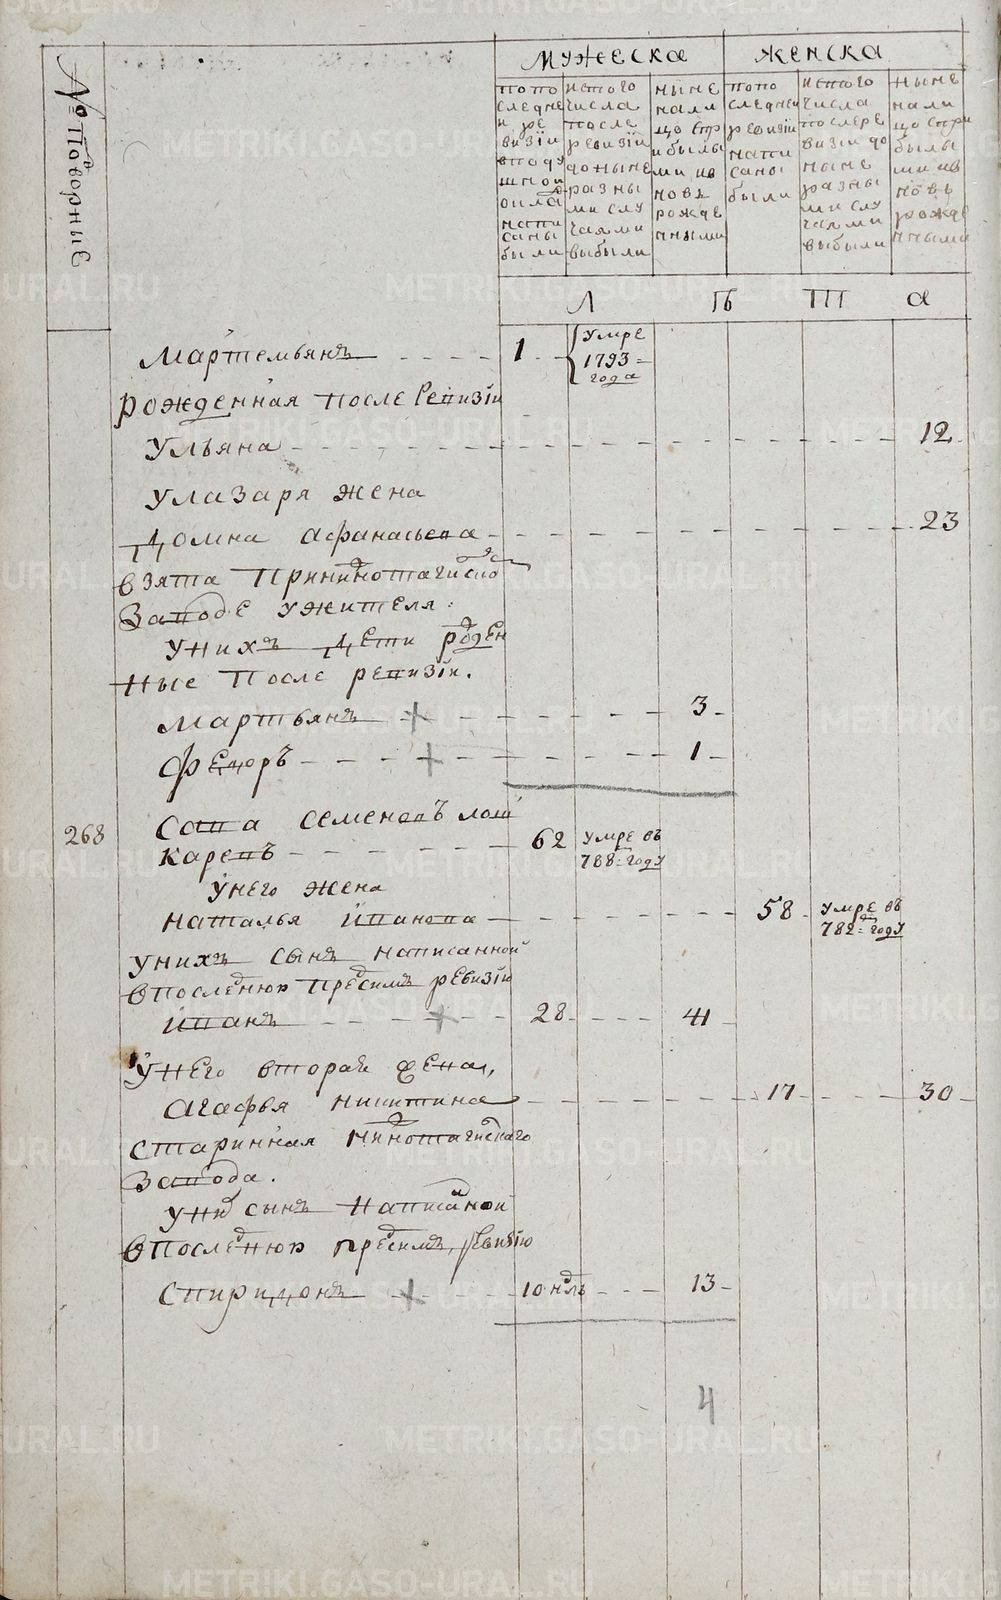 № Подворные
мужеска
женска
попо
следне
и ре
визiи
вподу
шной
окла
напи
саны
были
истого
числа
после
ревизiи
доныне
разны
ми слу
чаями
выбыли
ныне
нали
цо спр
ибылы
ми ив
новь
рожде
нными
попо
следней
ревизiи
напи
саны
были
истого
числа
послере
визiи до
ныне
разны
ми слу
чаями
выбыли
ныне
нали
цо спри
былы
ми ив
новь
рожде
нными
Л Ѣ Т а
Мартемьянъ 1 умре
1793
года
рожденная после Ревизiи
Ульяна 12
Улазаря жена
Домна афанасьева 23
взята Принижнотагилско
Заводе ужителя
унихъ дети рожден
ные После ревизiи.
Мартьянъ + 3
Федоръ + 1
268 Сава семеновъ лош
каревъ 62 умре въ
788 году
унего жена
наталья иванова 58 умре въ
782 году
унихъ сынъ написанной
впоследнюю предсимъ ревизiю
иванъ + 28 41
Унего вторая жена,
агафья никитина 17 30
старинная нижнотагилскаго
Завода.
уни сынъ написаной
впоследнюю предсимъ ревизiю
спиридонъ + 10 ндль 13
4
METRIKI.GASO-URAL.RU